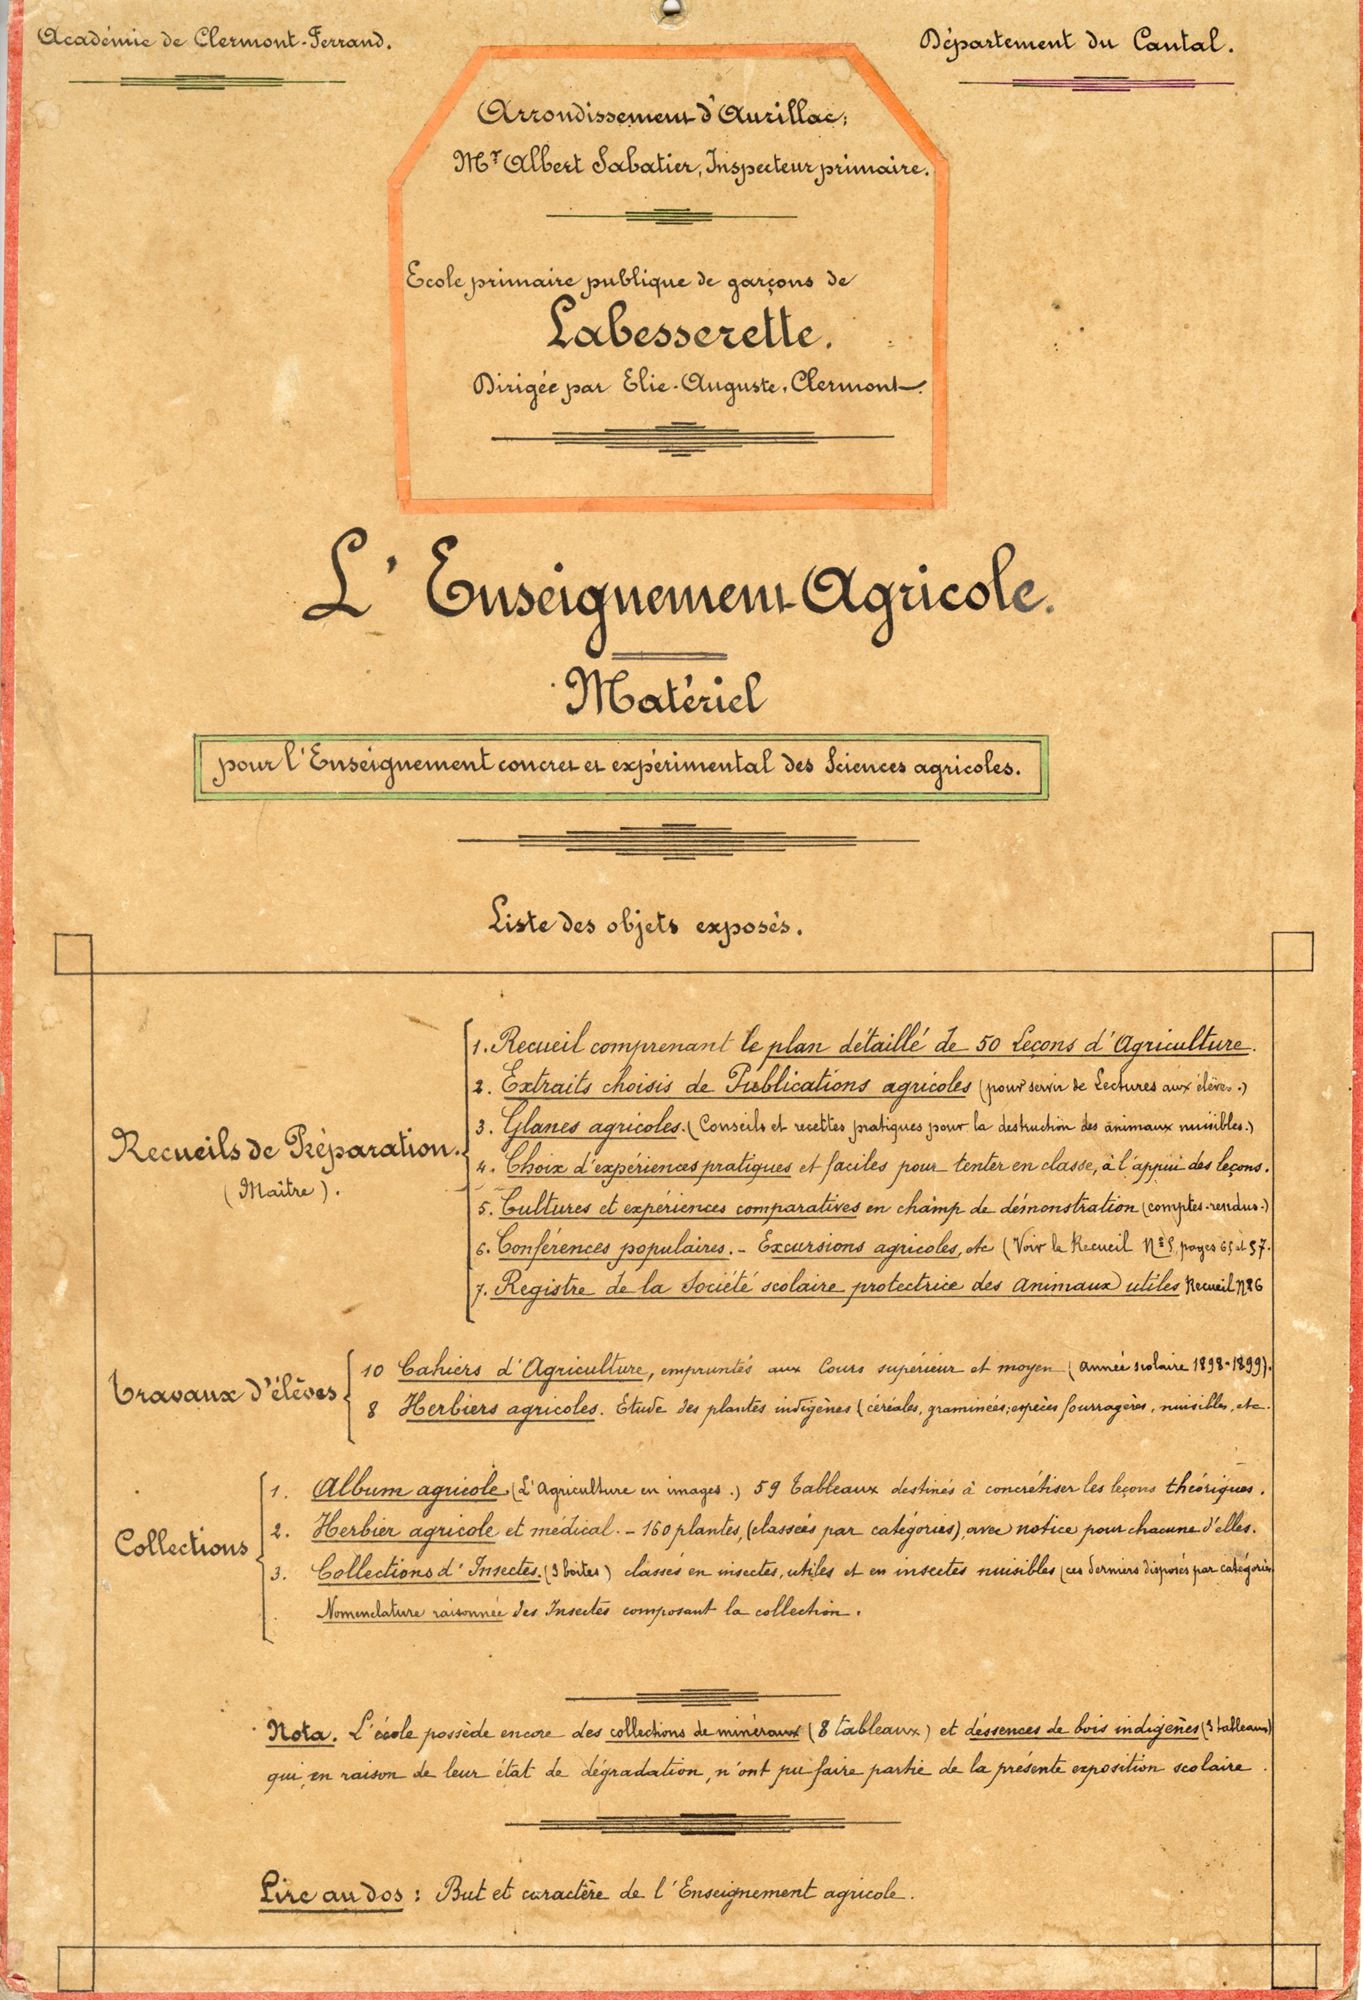 Académie de Clermont-Ferrand.
Département du Cantal.
Arrondissement d'Aurillac;
Mr Albert Sabatier, Inspecteur primaire.
Ecole primaire publique de garçons de
Labesserette.
Dirigée par Elie-Auguste, Clermont.
L'Enseignement Agricole.
Matériel
pour l'Enseignement concret et expérimental des Sciences agricoles.
Liste des objets exposés.
Recueils de Préparation.
(Maître).
1. Recueil comprenant le plan détaillé de 50 Leçons d'Agriculture.
2. Extraits choisis de Publications agricoles (pour servir de Lectures aux élèves.)
3. Glanes agricoles. (Conseils et recettes pratiques pour la destruction des animaux nuisibles.)
4. Choix d'expériences pratiques et faciles pour tenter en classe, à l'appui des leçons.
5. Cultures et expériences comparatives en champ de démonstration (comptes-rendus.)
6. Conférences populaires. - Excursions agricoles, etc (Voir le Recueil No 5, pages 65 et 57.
7. Registre de la Société scolaire protectrice des animaux utiles Recueil No 6
Travaux d'élèves
10 Cahiers d'Agriculture, empruntés aux Cours supérieur et moyen (année scolaire 1898-1899).
8 Herbiers agricoles. Etude des plantes indigènes (céréales, graminées; espèces fourragères, nuisibles, etc.
Collections
1. Album agricole (L'Agriculture en images.) 59 tableaux destinés à concrétiser les leçons théoriques.
2. Herbier agricole et médical. - 160 plantes, (classées par catégories), avec notice pour chacune d'elles.
3. Collections d'Insectes. (3 boîtes) classés en insectes, utiles et en insectes nuisibles (ces derniers disposés par catégories
Nomenclature raisonnée des Insectes composant la collection.
Nota. L'école possède encore des collections de minéraux (8 tableaux) et d'essences de bois indigènes (3 tableaux)
qui, en raison de leur état de dégradation, n'ont pu faire partie de la présente exposition scolaire.
Lire au dos : But et caractère de l'Enseignement agricole.